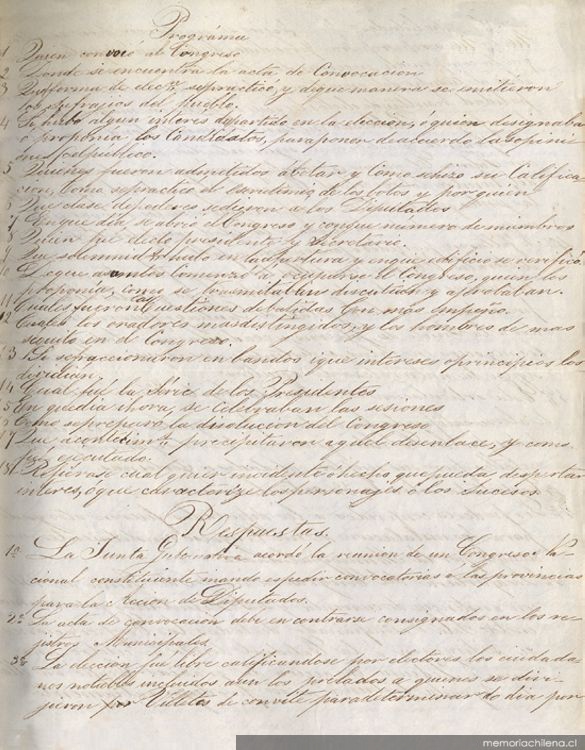 Programa
1 Quien convocó al Congreso
2 Donde se encuentra la acta de Convocacion
3 Que forma de elecn. se practicó, y de que manera se emitieron
los sufrajios del pueblo.
4 Si hubo algun interes de partido en la eleccion, ó quien designaba
ó proponia los Candidatos, para poner de acuerdo la opini
on del publico.
5 Quienes fueron admitidos á botar y como se hizo su Califica
cion, como se practicó el escrutinio de los botos y por quien
6 Que clase de poderes se dieron a los Diputados
7 En que dia se abrió el Congreso y con que numero de miembros
8 Quien fue electo presidente y Secretario.
9 Que solemnid. hubo en la apertura y en que edificio se verificó
10 De que asuntos comenzó a ocuparse el Congreso, quien los
proponia, como se tramitaban discutian y aprobaban.
11 Cuales fueron las Cuestiones debatidas con mas empeño.
12 Cuales los oradores mas distinguidos, y los hombres de mas
sequito en el Congreso.
13 Si se fraccionaron en bandos i que intereses o principios los
dividian.
14 Cual fué la Série de los Presidentes
15 En que dia i hora, se Celebraban las sesiones
16 Como se preparó la disolucion del Congreso
17 Que acontecimtos. precipitaron aquel desenlace, y como
fué ejecutado.
18 Refierase cual quier incidente ó hecho que pueda despertar
interes, ó que caracterize los personajes ó los sucesos
Respuestas.
1a. La Junta Gubernativa acordó la reunion de un Congreso Na
cional constituente mandó espedir convocatorias á las provincias
para la eleccion de Diputados.
2a. La acta de convocacion debe encontrarse consignados en los re
jistros Municipales.
3a. La eleccion fue libre calificandose por electores los ciudada
nos notables incluidos aun los prelados a quienes se diri-
jieron por Billetes de convite para determinar do dia por
memoriachilena.cl